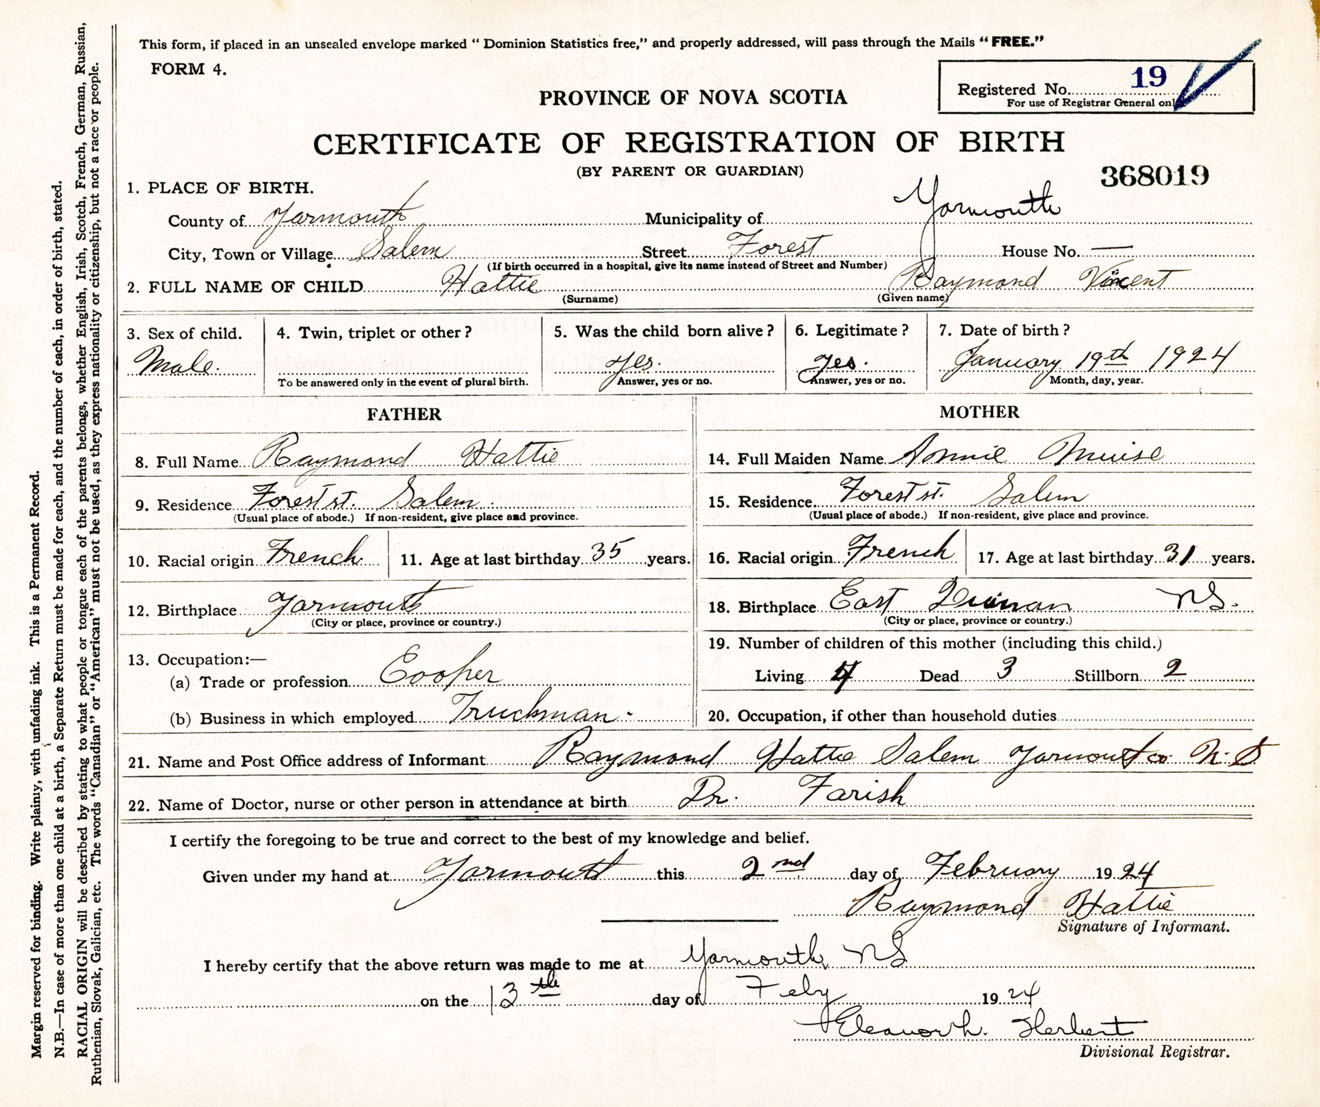 This form, if placed in an unsealed envelope marked " Dominion Statistics free," and properly addressed, will pass through the Mails " FREE."
FORM 4.
Registered No. 19
For use of Registrar General only
PROVINCE OF NOVA SCOTIA
CERTIFICATE OF REGISTRATION OF BIRTH
(BY PARENT OR GUARDIAN)
368019
1. PLACE OF BIRTH.
County of Yarmouth Municipality of Yarmouth
City, Town or Village Salem Street Forest House No. —
(If birth occurred in a hospital, give its name instead of Street and Number)
2. FULL NAME OF CHILD Hattie Raymond Vincent
(Surname) (Given name)
3. Sex of child. 4. Twin, triplet or other? 5. Was the child born alive? 6. Legitimate? 7. Date of birth?
Male. yes. yes. January 19th 1924
To be answered only in the event of plural birth. Answer, yes or no. Answer, yes or no. Month, day, year.
FATHER MOTHER
8. Full Name Raymond Hattie 14. Full Maiden Name Annie Muise
9. Residence Forest st. Salem. 15. Residence Forest st. Salem
(Usual place of abode.) If non-resident, give place and province. (Usual place of abode.) If non-resident, give place and province.
10. Racial origin French 11. Age at last birthday 35 years. 16. Racial origin French 17. Age at last birthday 31 years.
12. Birthplace Yarmouth 18. Birthplace East NS.
(City or place, province or country.) (City or place, province or country.)
19. Number of children of this mother (including this child.)
13. Occupation:—
(a) Trade or profession Cooper Living 4 Dead 3 Stillborn 2
(b) Business in which employed Truckman. 20. Occupation, if other than household duties
21. Name and Post Office address of Informant Raymond Hattie Salem Yarmouth co N. S
22. Name of Doctor, nurse or other person in attendance at birth Dr. Farish
I certify the foregoing to be true and correct to the best of my knowledge and belief.
Given under my hand at Yarmouth this 2nd day of February 1924
Raymond Hattie
Signature of Informant.
I hereby certify that the above return was made to me at Yarmouth, NS
on the 13th day of Feby 1924
Eleanor h. Herbert
Divisional Registrar.
Margin reserved for binding. Write plainly, with unfading ink. This is a Permanent Record.
N.B.—In case of more than one child at a birth, a Separate Return must be made for each, and the number of each, in order of birth, stated.
RACIAL ORIGIN will be described by stating to what people or tongue each of the parents belongs, whether English, Irish, Scotch, French, German, Russian,
Ruthenian, Slovak, Galician, etc. The words "Canadian" or "American" must not be used, as they express nationality or citizenship, but not a race or people.